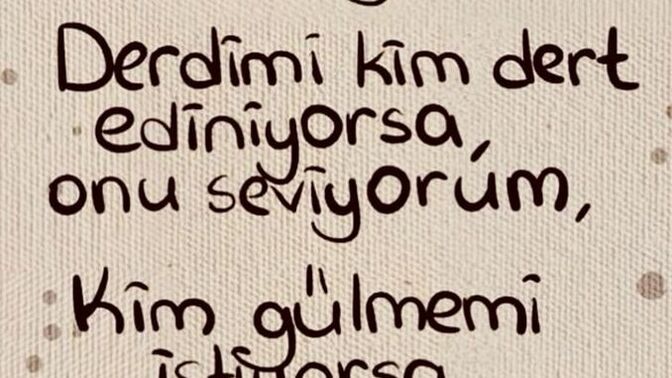 Derdimi kim dert
ediniyorsa,
onu seviyorum,
Kim gülmemi
istiyorsa